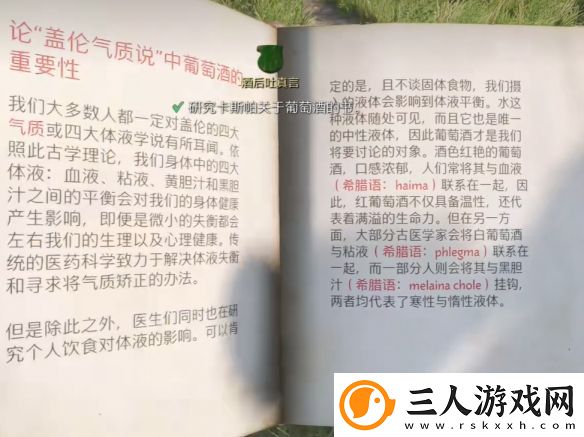 论“盖伦气质说”中葡萄酒的
重要性
我们大多数人都一定对盖伦的四大
气质或四大体液学说有所耳闻。依
照此古学理论，我们身体中的四大
体液：血液、粘液、黄胆汁和黑胆
汁之间的平衡会对我们的身体健康
产生影响，即便是微小的失衡都会
左右我们的生理以及心理健康。传
统的医药科学致力于解决体液失衡
和寻求将气质矫正的办法。
但是除此之外，医生们同时也在研
究个人饮食对体液的影响。可以肯
酒后吐真言
✔ 研究卡斯帕关于葡萄酒的书。
定的是，且不谈固体食物，我们摄
入的液体会影响到体液平衡。水这
种液体随处可见，而且它也是唯一
的中性液体，因此葡萄酒才是我们
将要讨论的对象。酒色红艳的葡萄
酒，口感浓郁，人们常将其与血液
（希腊语：haima）联系在一起，因
此，红葡萄酒不仅具备温性，还代
表着满溢的生命力。但在另一方
面，大部分古医学家会将白葡萄酒
与粘液（希腊语：phlegma）联系在
一起，而一部分人则会将其与黑胆
汁（希腊语：melaina chole）挂钩，
两者均代表了寒性与惰性液体。
三人游戏网
www.rskxxh.com